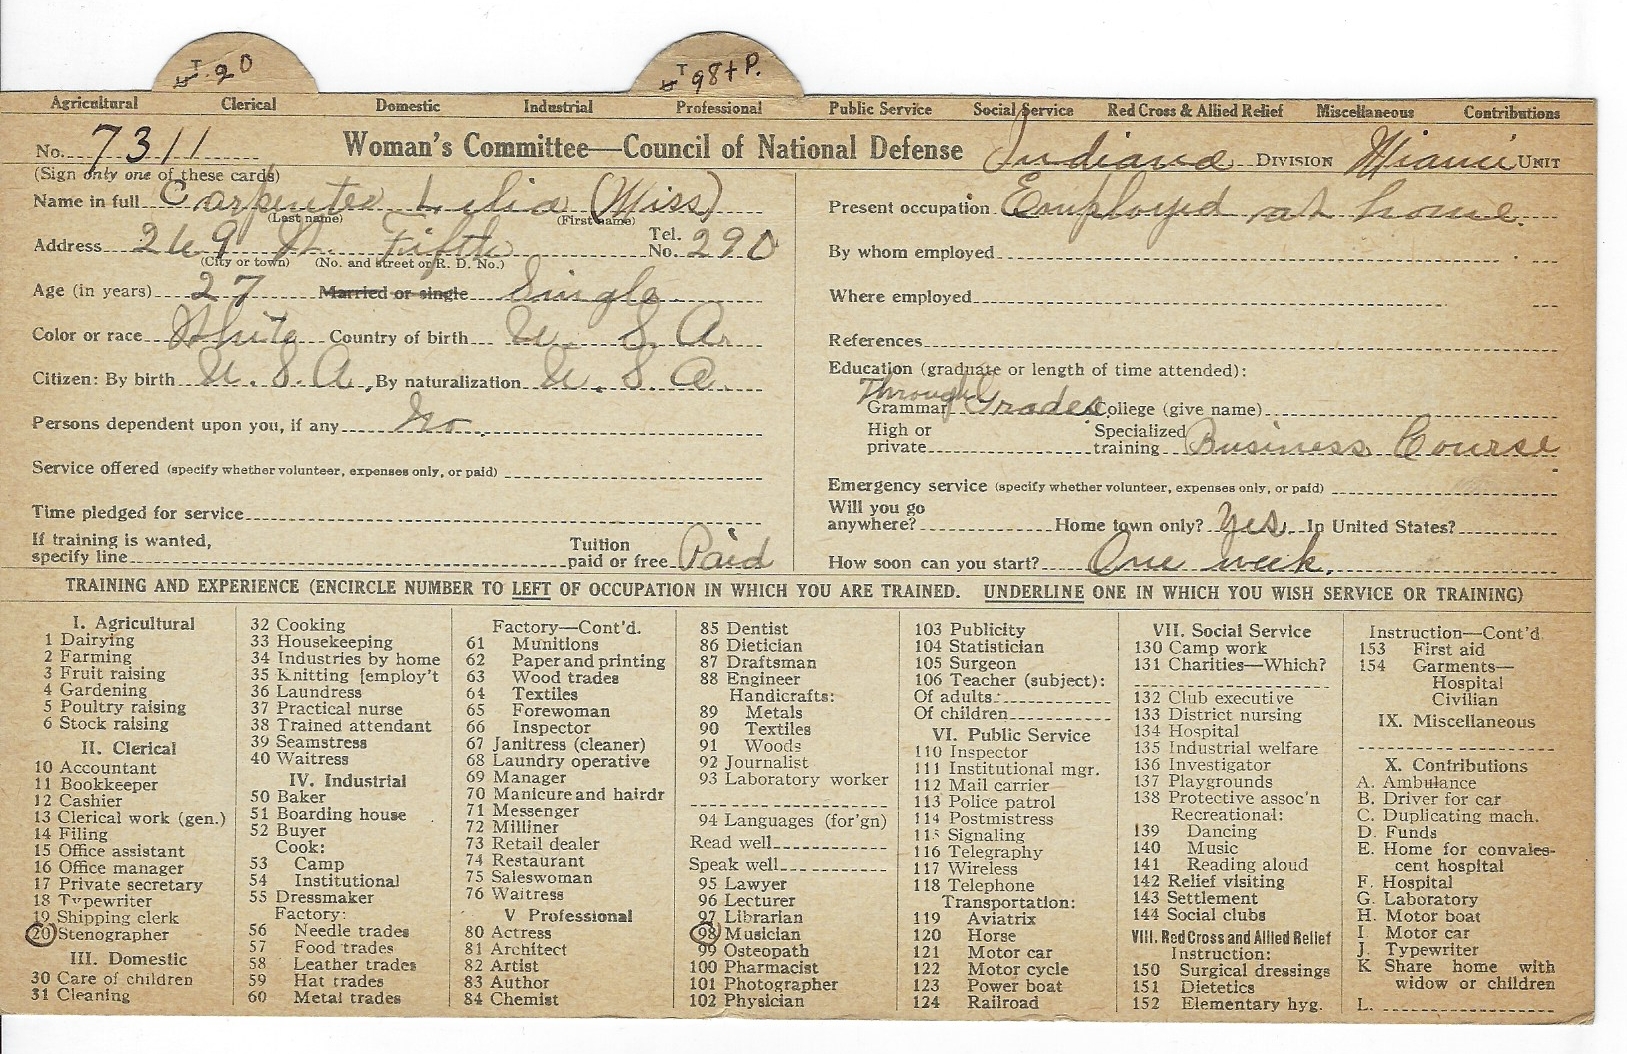 T 20
T 98 + P.
Agricultural Clerical Domestic Industrial Professional Public Service Social Service Red Cross & Allied Relief Miscellaneous Contributions
No. 7311 Woman's Committee—Council of National Defense Indiana DIVISION Miami UNIT
(Sign only one of these cards)
Name in full Carpenter Lelia (Miss)
(Last name) (First name)
Address 269 W. Fifth Tel. No. 290
(City or town) (No. and street or R. D. No.)
Age (in years) 27 Married or single Single
Color or race White Country of birth U. S. A.
Citizen: By birth U. S. A. By naturalization U. S. A.
Persons dependent upon you, if any No.
Service offered (specify whether volunteer, expenses only, or paid)
Time pledged for service
If training is wanted, specify line Tuition paid or free Paid
Present occupation Employed at home.
By whom employed
Where employed
References
Education (graduate or length of time attended):
Through
Grammar Grades College (give name)
High or private Specialized training Business Course
Emergency service (specify whether volunteer, expenses only, or paid)
Will you go anywhere? Home town only? Yes. In United States?
How soon can you start? One week.
TRAINING AND EXPERIENCE (ENCIRCLE NUMBER TO LEFT OF OCCUPATION IN WHICH YOU ARE TRAINED. UNDERLINE ONE IN WHICH YOU WISH SERVICE OR TRAINING)
I. Agricultural
1 Dairying
2 Farming
3 Fruit raising
4 Gardening
5 Poultry raising
6 Stock raising
II. Clerical
10 Accountant
11 Bookkeeper
12 Cashier
13 Clerical work (gen.)
14 Filing
15 Office assistant
16 Office manager
17 Private secretary
18 Typewriter
19 Shipping clerk
20 Stenographer
III. Domestic
30 Care of children
31 Cleaning
32 Cooking
33 Housekeeping
34 Industries by home
35 Knitting [employ't
36 Laundress
37 Practical nurse
38 Trained attendant
39 Seamstress
40 Waitress
IV. Industrial
50 Baker
51 Boarding house
52 Buyer
Cook:
53 Camp
54 Institutional
55 Dressmaker
Factory:
56 Needle trades
57 Food trades
58 Leather trades
59 Hat trades
60 Metal trades
Factory—Cont'd.
61 Munitions
62 Paper and printing
63 Wood trades
64 Textiles
65 Forewoman
66 Inspector
67 Janitress (cleaner)
68 Laundry operative
69 Manager
70 Manicure and hairdr
71 Messenger
72 Milliner
73 Retail dealer
74 Restaurant
75 Saleswoman
76 Waitress
V Professional
80 Actress
81 Architect
82 Artist
83 Author
84 Chemist
85 Dentist
86 Dietician
87 Draftsman
88 Engineer
Handicrafts:
89 Metals
90 Textiles
91 Woods
92 Journalist
93 Laboratory worker
94 Languages (for'gn)
Read well
Speak well
95 Lawyer
96 Lecturer
97 Librarian
98 Musician
99 Osteopath
100 Pharmacist
101 Photographer
102 Physician
103 Publicity
104 Statistician
105 Surgeon
106 Teacher (subject):
Of adults:
Of children
VI. Public Service
110 Inspector
111 Institutional mgr.
112 Mail carrier
113 Police patrol
114 Postmistress
115 Signaling
116 Telegraphy
117 Wireless
118 Telephone
Transportation:
119 Aviatrix
120 Horse
121 Motor car
122 Motor cycle
123 Power boat
124 Railroad
VII. Social Service
130 Camp work
131 Charities—Which?
132 Club executive
133 District nursing
134 Hospital
135 Industrial welfare
136 Investigator
137 Playgrounds
138 Protective assoc'n
Recreational:
139 Dancing
140 Music
141 Reading aloud
142 Relief visiting
143 Settlement
144 Social clubs
VIII. Red Cross and Allied Relief
Instruction:
150 Surgical dressings
151 Dietetics
152 Elementary hyg.
Instruction—Cont'd.
153 First aid
154 Garments—
Hospital
Civilian
IX. Miscellaneous
X. Contributions
A. Ambulance
B. Driver for car
C. Duplicating mach.
D. Funds
E. Home for convales-
cent hospital
F. Hospital
G. Laboratory
H. Motor boat
I. Motor car
J. Typewriter
K Share home with
widow or children
L.